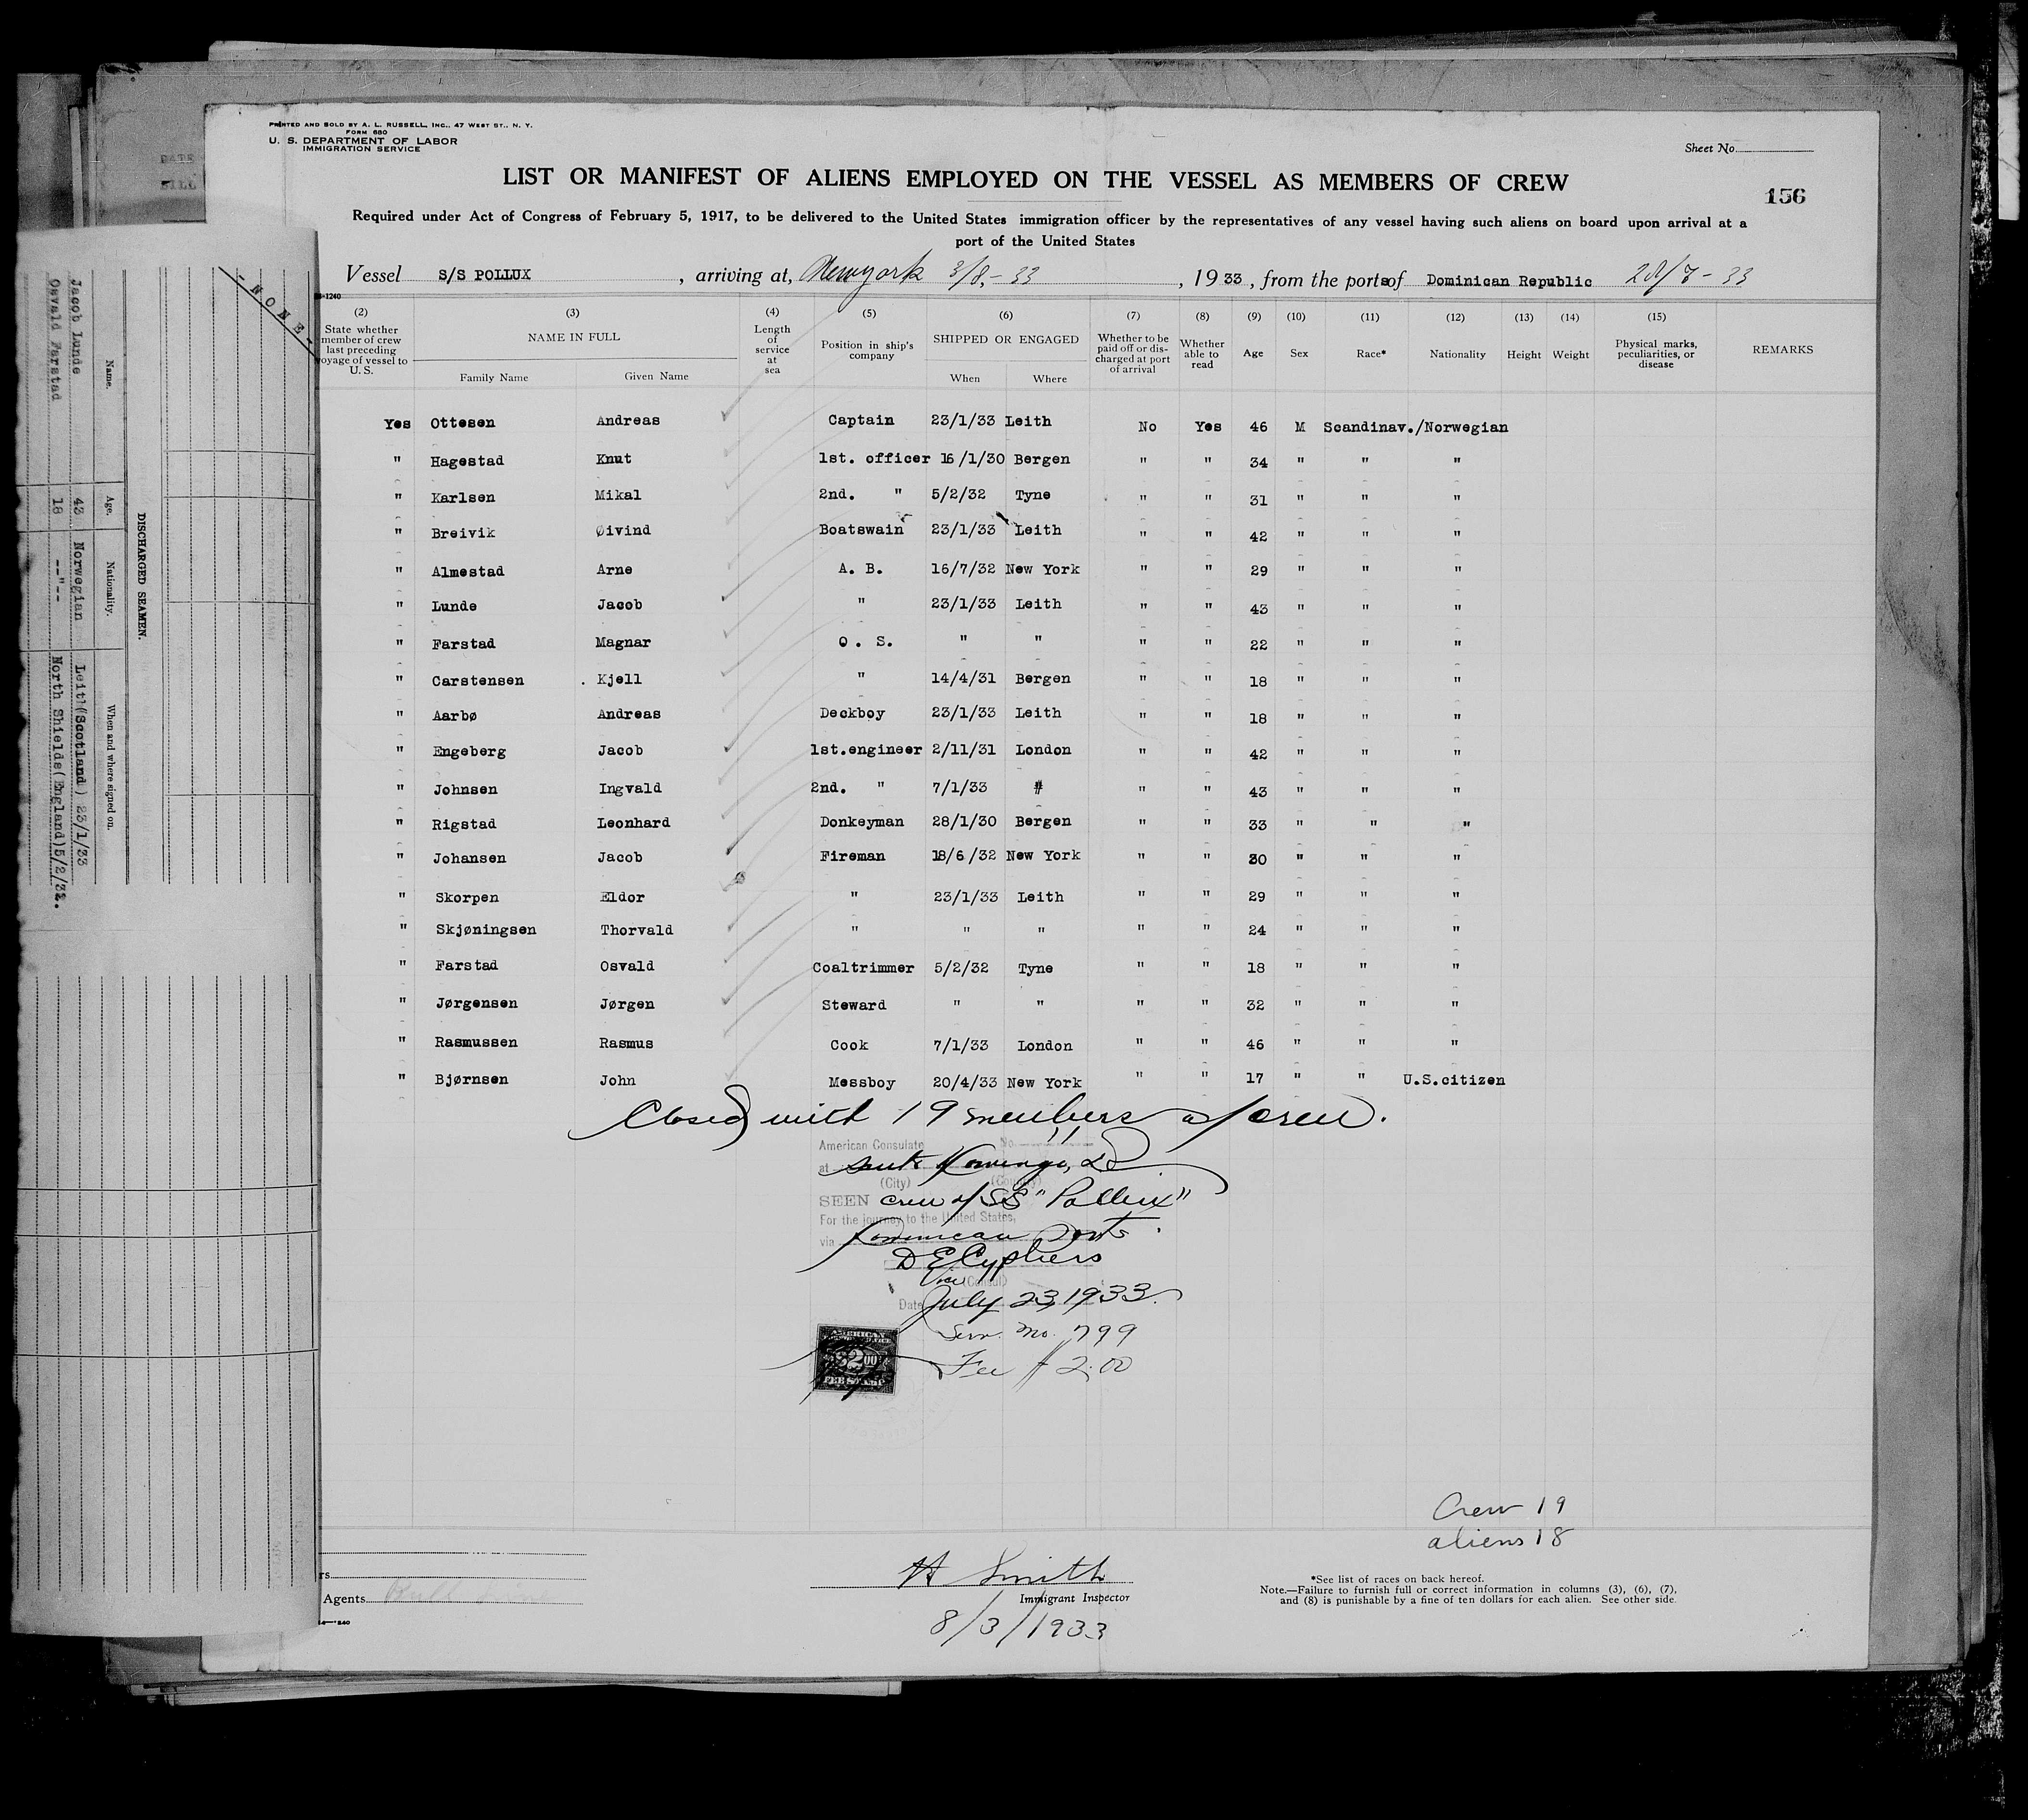 PRINTED AND SOLD BY A. L. RUSSELL, INC., 47 WEST ST., N. Y.
FORM 680
U. S. DEPARTMENT OF LABOR
IMMIGRATION SERVICE
Sheet No.
LIST OR MANIFEST OF ALIENS EMPLOYED ON THE VESSEL AS MEMBERS OF CREW
156
Required under Act of Congress of February 5, 1917, to be delivered to the United States immigration officer by the representatives of any vessel having such aliens on board upon arrival at a
port of the United States
Vessel S/S POLLUX, arriving at, Newyork 3/8.-33, 1933, from the ports of Dominican Republic 28/7-33
(2) State whether member of crew last preceding voyage of vessel to U.S. (3) NAME IN FULL Family Name Given Name (4) Length of service at sea (5) Position in ship's company (6) SHIPPED OR ENGAGED When Where (7) Whether to be paid off or discharged at port of arrival (8) Whether able to read (9) Age (10) Sex (11) Race* (12) Nationality (13) Height (14) Weight (15) Physical marks, peculiarities, or disease REMARKS
Yes Ottesen Andreas Captain 23/1/33 Leith No Yes 46 M Scandinav./Norwegian
" Hagestad Knut 1st. officer 16/1/30 Bergen " " 34 " " "
" Karlsen Mikal 2nd. " 5/2/32 Tyne " " 31 " " "
" Breivik Øivind Boatswain 23/1/33 Leith " " 42 " " "
" Almestad Arne A. B. 16/7/32 New York " " 29 " " "
" Lunde Jacob " 23/1/33 Leith " " 43 " " "
" Farstad Magnar O. S. " " " " 22 " " "
" Carstensen Kjell " 14/4/31 Bergen " " 18 " " "
" Aarbø Andreas Deckboy 23/1/33 Leith " " 18 " " "
" Engeberg Jacob 1st.engineer 2/11/31 London " " 42 " " "
" Johnsen Ingvald 2nd. " 7/1/33 " " " 43 " " "
" Rigstad Leonhard Donkeyman 28/1/30 Bergen " " 33 " " "
" Johansen Jacob Fireman 18/6/32 New York " " 30 " " "
" Skorpen Eldor " 23/1/33 Leith " " 29 " " "
" Skjøningsen Thorvald " " " " " 24 " " "
" Farstad Osvald Coaltrimmer 5/2/32 Tyne " " 18 " " "
" Jørgensen Jørgen Steward " " " " 32 " " "
" Rasmussen Rasmus Cook 7/1/33 London " " 46 " " "
" Bjørnsen John Messboy 20/4/33 New York " " 17 " " U.S.citizen
Closed with 19 members of crew.
American Consulate No.
at Santo Domingo, D
(City) (Country)
SEEN crew of SS "Pollux"
For the journey to the United States,
via Dominican Ports.
D E Cyphers
Vice (Consul)
Date July 23, 1933.
Serv. No. 799
AMERICAN
$2.00
FEE STAMP
Fee $2.00
Crew 19
aliens 18
rs
Agents
H Smith
Immigrant Inspector
8/3/1933
*See list of races on back hereof.
Note.—Failure to furnish full or correct information in columns (3), (6), (7),
and (8) is punishable by a fine of ten dollars for each alien. See other side.
- NONE -
DISCHARGED SEAMEN.
Name. Age. Nationality. When and where signed on.
Jacob Lunde 43 Norwegian Leith(Scotland) 23/1/33
Osvald Farstad 18 --"-- North Shields(England)5/2/32.